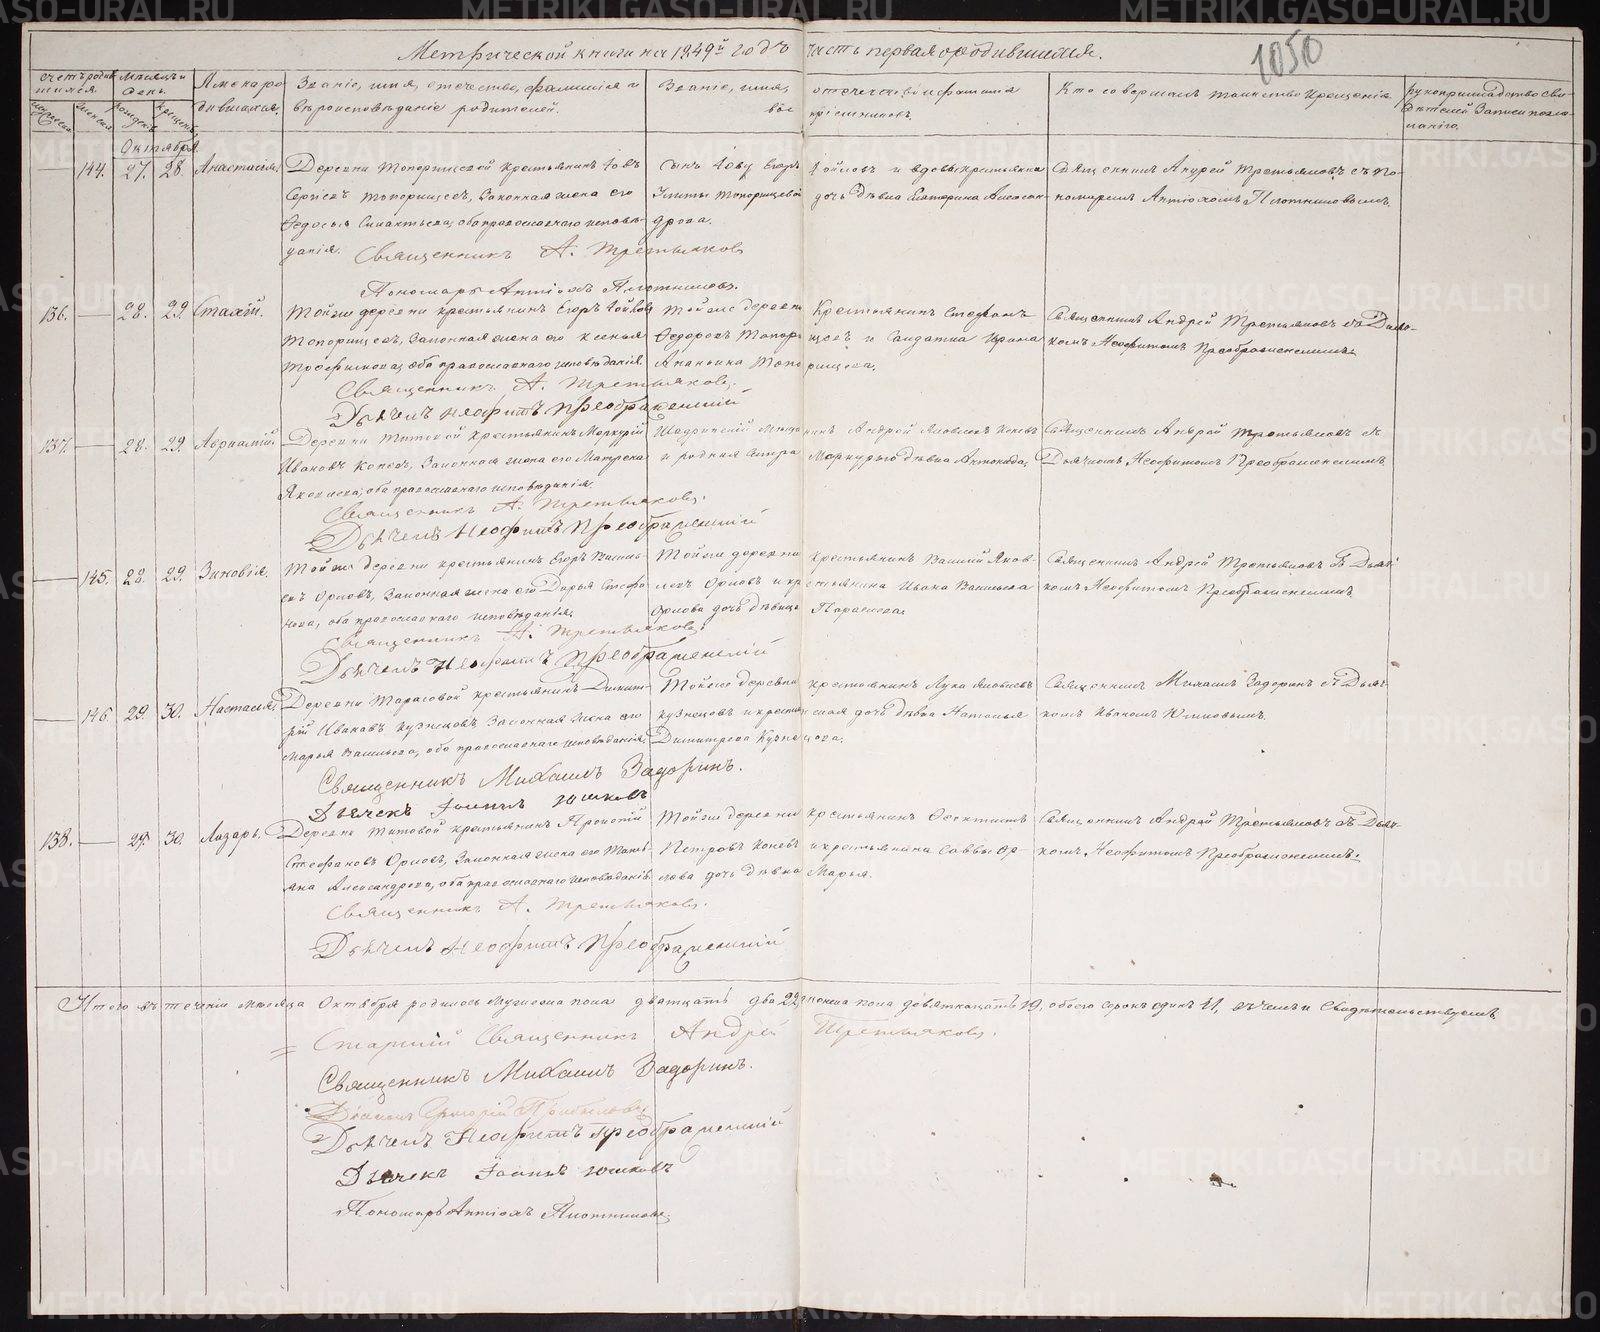 Метрической книги на 1849й годъ часть первая о родившихся.
1050
Счетъ родившихся.
Мѣсяцъ и день.
Имена родившихся.
Званіе, имя, отечество, фамилія и вѣроисповѣданіе родителей.
Званіе, имя, отечество и фамилія воспріемниковъ.
Кто совершалъ таинство Крещенія
рукоприкладство свидѣтелей записи по желанію.
мужеска женска рожденія крещенія
Октября.
144. 27. 28. Анастасія.
Деревни Топорищевой крестьянинъ Іовъ
Топорищевъ, Законная жена его
Федосья оба православнаго исповѣданія.
Топорищевой дочь дѣвка Катерина
Священникъ Андрей Третьяковъ съ пономаремъ Антіохомъ Плотниковымъ.
Священникъ А. Третьяковъ
Пономарь Антіохъ Плотниковъ.
136. 28. 29. Стахій.
Той же деревни крестьянинъ Егоръ
Топорищевъ, Законная жена его Ксенья
оба православнаго исповѣданія.
Той же деревни Крестьянинъ Стефанъ
Федоровъ Топорищевъ и Солдатка Ирина
Ананьина Топорищева.
Священникъ Андрей Третьяковъ съ Дьячкомъ Неофитомъ Преображенскимъ.
Священникъ А. Третьяковъ.
Дьячекъ Неофитъ Преображенскій
137. 28. 29. Аврамій.
Деревни Титовой крестьянинъ Меркурій
Ивановъ Коневъ, Законная жена его Матрена
Яковлева, оба православнаго исповѣданія.
Шадринскій Андрей Яковлевъ Коневъ
и родная сестра Меркурьева дѣвка
Священникъ Андрей Третьяковъ съ
Дьячкомъ Неофитомъ Преображенскимъ.
Священникъ А. Третьяковъ.
Дьячекъ Неофитъ Преображенскій
145. 28. 29. Зиновія.
Той же деревни крестьянинъ Егоръ Васильевъ Орловъ, Законная жена его Дарья Стефанова, оба православнаго исповѣданія.
Той же деревни крестьянинъ Василій Яковлевъ Орловъ и крестьянина Ивана Васильева
Орлова дочь дѣвица Параскева.
Священникъ Андрей Третьяковъ съ Дьячкомъ Неофитомъ Преображенскимъ.
Священникъ А. Третьяковъ.
Дьячекъ Неофитъ Преображенскій
146. 29. 30. Настасія.
Деревни Тарасовой крестьянинъ Димитрій Ивановъ Кузнецовъ, Законная жена его
Марья Васильева, оба православнаго исповѣданія.
Той же деревни крестьянинъ Лука Яковлевъ
Кузнецовъ и крестьянская дочь дѣвка Наталья
Димитрева Кузнецова.
Священникъ Михаилъ Задоринъ съ Дьячкомъ Иваномъ Юшковымъ.
Священникъ Михаилъ Задоринъ.
Дьячекъ Іоаннъ Юшковъ
138. 29. 30. Лазарь.
Деревни Титовой крестьянинъ
Стефановъ Орловъ, Законная жена его Татьяна Александрова, оба православнаго исповѣданія.
Той же деревни крестьянинъ Феоктистъ
Петровъ Коневъ и крестьянина Саввы Орлова дочь дѣвка Марья.
Священникъ Андрей Третьяковъ съ Дьячкомъ Неофитомъ Преображенскимъ.
Священникъ А. Третьяковъ.
Дьячекъ Неофитъ Преображенскій
Итого въ теченіи мѣсяца Октября родилось мужеска пола двадцать два 22, женска пола девятнадцать 19, обоего сорокъ одинъ 41, въ чемъ и свидѣтельствуемъ
Старшій Священникъ Андрей Третьяковъ.
Священникъ Михаилъ Задоринъ.
Діаконъ Григорій
Дьячекъ Неофитъ Преображенскій
Дьячекъ Іоаннъ Юшковъ
Пономарь Антіохъ Плотниковъ.
METRIKI.GASO-URAL.RU